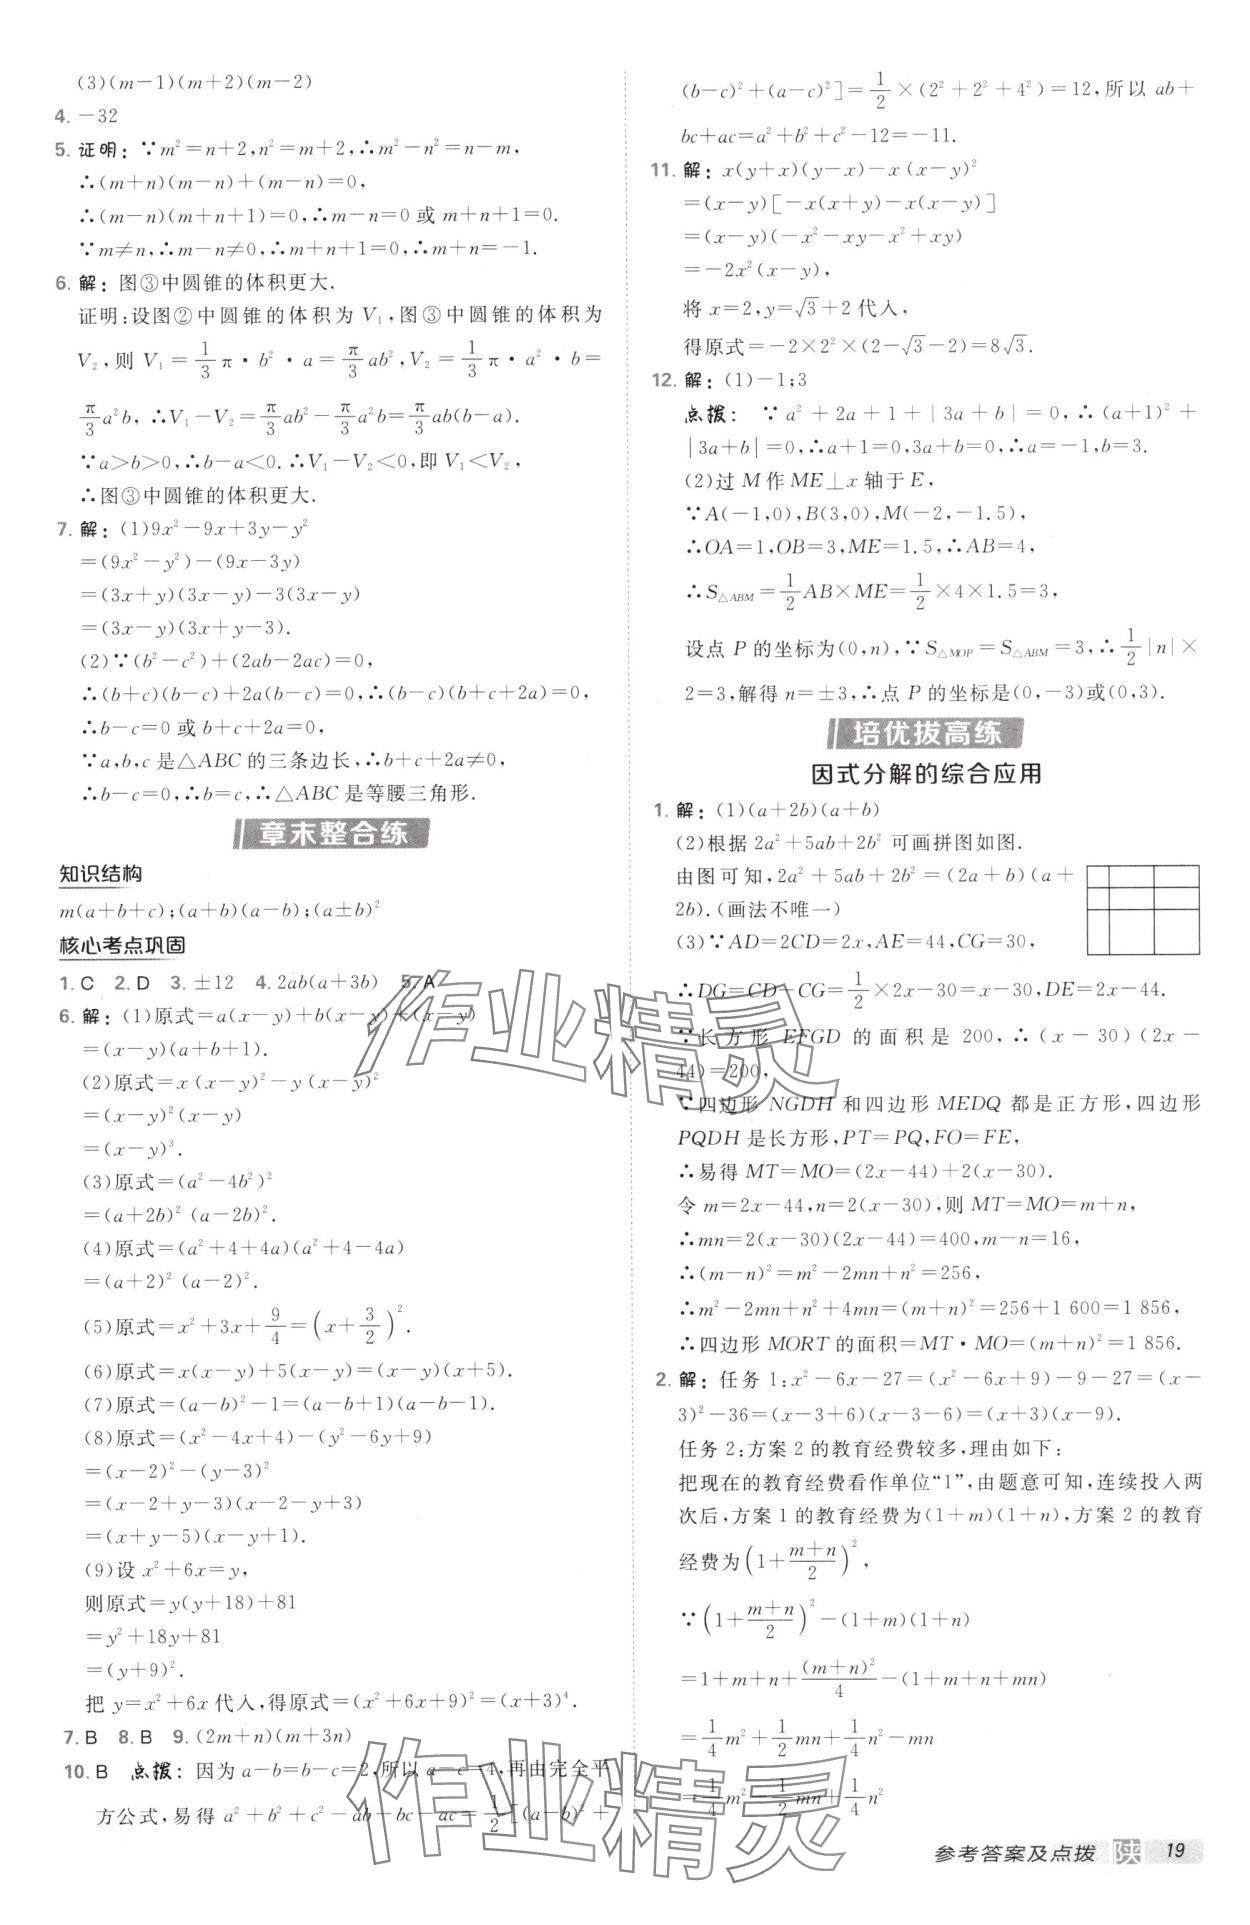 (3)(m－1)(m＋2)(m－2)
4. －32
5. 证明：∵m²＝n＋2,n²＝m＋2,∴m²－n²＝n－m,
∴(m＋n)(m－n)＋(m－n)＝0,
∴(m－n)(m＋n＋1)＝0,∴m－n＝0 或 m＋n＋1＝0.
∵m≠n,∴m－n≠0,∴m＋n＋1＝0.∴m＋n＝－1.
6. 解：图③中圆锥的体积更大.
证明:设图②中圆锥的体积为 V₁,图③中圆锥的体积为
V₂,则 V₁＝1/3 π·b²·a＝π/3 ab²,V₂＝1/3 π·a²·b＝
π/3 a²b, ∴V₁－V₂＝π/3 ab²－π/3 a²b＝π/3 ab(b－a).
∵a＞b＞0,∴b－a＜0.∴V₁－V₂＜0,即 V₁＜V₂,
∴图③中圆锥的体积更大.
7. 解：(1)9x²－9x＋3y－y²
＝(9x²－y²)－(9x－3y)
＝(3x＋y)(3x－y)－3(3x－y)
＝(3x－y)(3x＋y－3).
(2)∵(b²－c²)＋(2ab－2ac)＝0,
∴(b＋c)(b－c)＋2a(b－c)＝0,∴(b－c)(b＋c＋2a)＝0,
∴b－c＝0 或 b＋c＋2a＝0,
∵a,b,c 是△ABC 的三条边长,∴b＋c＋2a≠0,
∴b－c＝0,∴b＝c,∴△ABC 是等腰三角形.
章末整合练
知识结构
m(a＋b＋c);(a＋b)(a－b);(a±b)²
核心考点巩固
1. C 2. D 3. ±12 4. 2ab(a＋3b) 5. A
6. 解：(1)原式＝a(x－y)＋b(x－y)＋(x－y)
＝(x－y)(a＋b＋1).
(2)原式＝x(x－y)²－y(x－y)²
＝(x－y)²(x－y)
＝(x－y)³.
(3)原式＝(a²－4b²)²
＝(a＋2b)² (a－2b)².
(4)原式＝(a²＋4＋4a)(a²＋4－4a)
＝(a＋2)² (a－2)².
(5)原式＝x²＋3x＋9/4＝(x＋3/2)².
(6)原式＝x(x－y)＋5(x－y)＝(x－y)(x＋5).
(7)原式＝(a－b)²－1＝(a－b＋1)(a－b－1).
(8)原式＝(x²－4x＋4)－(y²－6y＋9)
＝(x－2)²－(y－3)²
＝(x－2＋y－3)(x－2－y＋3)
＝(x＋y－5)(x－y＋1).
(9)设 x²＋6x＝y,
则原式＝y(y＋18)＋81
＝y²＋18y＋81
＝(y＋9)².
把 y＝x²＋6x 代入,得原式＝(x²＋6x＋9)²＝(x＋3)⁴.
7. B 8. B 9. (2m＋n)(m＋3n)
10. B 点拨：因为 a－b＝b－c＝2,所以 a－c＝4,再由完全平
方公式,易得 a²＋b²＋c²－ab－bc－ac＝1/2[(a－b)²＋
(b－c)²＋(a－c)²]＝1/2×(2²＋2²＋4²)＝12,所以 ab＋
bc＋ac＝a²＋b²＋c²－12＝－11.
11. 解：x(y＋x)(y－x)－x(x－y)²
＝(x－y)[－x(x＋y)－x(x－y)]
＝(x－y)(－x²－xy－x²＋xy)
＝－2x²(x－y),
将 x＝2,y＝√3＋2 代入,
得原式＝－2×2²×(2－√3－2)＝8√3.
12. 解：(1)－1;3
点拨： ∵a²＋2a＋1＋|3a＋b|＝0,∴(a＋1)²＋
|3a＋b|＝0,∴a＋1＝0,3a＋b＝0,∴a＝－1,b＝3.
(2)过 M 作 ME⊥x 轴于 E,
∵A(－1,0),B(3,0),M(－2,－1.5),
∴OA＝1,OB＝3,ME＝1.5,∴AB＝4,
∴S△ABM＝1/2 AB×ME＝1/2×4×1.5＝3,
设点 P 的坐标为(0,n),∵S△MOP＝S△ABM＝3,∴1/2|n|×
2＝3,解得 n＝±3,∴点 P 的坐标是(0,－3)或(0,3).
培优拔高练
因式分解的综合应用
1. 解：(1)(a＋2b)(a＋b)
(2)根据 2a²＋5ab＋2b² 可画拼图如图.
由图可知,2a²＋5ab＋2b²＝(2a＋b)(a＋
2b).(画法不唯一)
(3)∵AD＝2CD＝2x,AE＝44,CG＝30,
∴DG＝CD－CG＝1/2×2x－30＝x－30,DE＝2x－44.
∵长方形 EFGD 的面积是 200,∴(x－30)(2x－
44)＝200,
∵四边形 NGDH 和四边形 MEDQ 都是正方形,四边形
PQDH 是长方形,PT＝PQ,FO＝FE,
∴易得 MT＝MO＝(2x－44)＋2(x－30).
令 m＝2x－44,n＝2(x－30),则 MT＝MO＝m＋n,
∴mn＝2(x－30)(2x－44)＝400,m－n＝16,
∴(m－n)²＝m²－2mn＋n²＝256,
∴m²－2mn＋n²＋4mn＝(m＋n)²＝256＋1 600＝1 856,
∴四边形 MORT 的面积＝MT·MO＝(m＋n)²＝1 856.
2. 解：任务 1:x²－6x－27＝(x²－6x＋9)－9－27＝(x－
3)²－36＝(x－3＋6)(x－3－6)＝(x＋3)(x－9).
任务 2:方案 2 的教育经费较多,理由如下:
把现在的教育经费看作单位“1”,由题意可知,连续投入两
次后,方案 1 的教育经费为(1＋m)(1＋n),方案 2 的教育
经费为(1＋(m＋n)/2)²,
∵(1＋(m＋n)/2)²－(1＋m)(1＋n)
＝1＋m＋n＋(m＋n)²/4－(1＋m＋n＋mn)
＝1/4 m²＋1/2 mn＋1/4 n²－mn
＝1/4 m²－1/2 mn＋1/4 n²
作业精灵
作业精灵
参考答案及点拨 陕 19